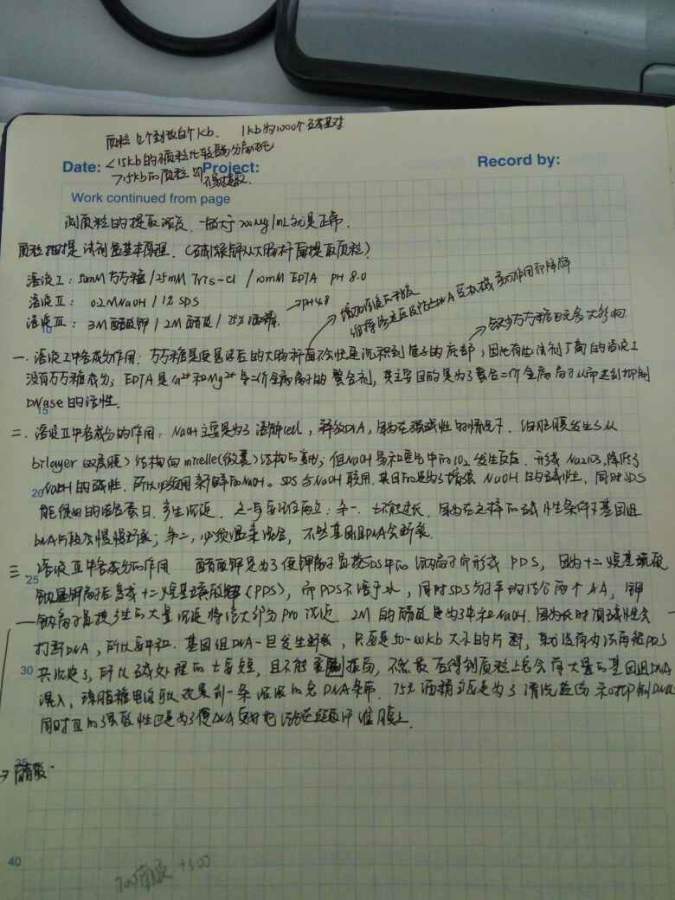 质粒 几个到数百个kb. 1kb为1000个碱基对
Date: <15kb的质粒比较容易
Project:
Record by:
>15kb的质粒
Work continued from page
测质粒的提取浓度. 一般大于 ng/mL就是正常.
质粒抽提试剂盒基本原理. (碱裂解从大肠杆菌提取质粒)
溶液I: 50mM葡萄糖/25mM Tris-Cl /10mM EDTA PH 8.0
溶液II: 0.2M NaOH / 1% SDS
溶液III: 3M醋酸钾/2M醋酸/75%酒精. → pH4.8
缺少葡萄糖
一. 溶液I中各成分作用: 葡萄糖是使悬浮后的大肠杆菌不会快速沉积到管子的底部;因此有些试剂厂商的溶液I
没有葡萄糖成分; EDTA是Ca²⁺和Mg²⁺等二价金属离子的螯合剂, 其主要目的是为了螯合二价金属离子从而达到抑制
DNase的活性.
15
二. 溶液II中各成分的作用: NaOH主要是为了溶解cell, 释放DNA, 因为在强碱性的情况下. 细胞膜发生了从
bilayer(双层膜)结构向micelle(微囊)结构的变化; 但NaOH易和空气中的CO₂发生反应. 形成Na2CO3, 降低了
20
NaOH的碱性. 所以必须用新鲜的NaOH. SDS与NaOH联用. 其目的是为了增强NaOH的碱性, 同时SDS
能很好的结合蛋白. 产生沉淀. 这一步要记住两点: 第一. 时间不能过长. 因为在这样的碱性条件下基因组
DNA片段会慢慢断裂; 第二, 必须温柔混合, 不然基因组DNA会断裂.
25
三 溶液III中各成分的作用 醋酸钾是为了使钾离子置换SDS中的钠离子而形成PDS, 因为十二烷基硫酸
钠遇钾离子后变成十二烷基硫酸钾(PDS), 而PDS不溶于水, 同时SDS 两个AA, 钾
钠离子置换产生的大量沉淀将绝大部分Pro沉淀. 2M的醋酸是为了中和NaOH. 因为长时间碱性会
打断DNA, 所以要中和. 基因组DNA一旦发生断裂, 只要是50-100kb大小的片断, 就没有办法再被PDS
30
共沉淀了, 所以碱处理的时间要短, 且不能剧烈振荡, 不然最后得到质粒上总会有大量的基因组DNA
混入, 琼脂糖电泳可以观察到一条浓浓的总DNA条带. 75%酒精主要是为了清洗盐份和抑制DNA
同时III的强酸性也是为了使DNA更好地结合在硅膜上.
35
40